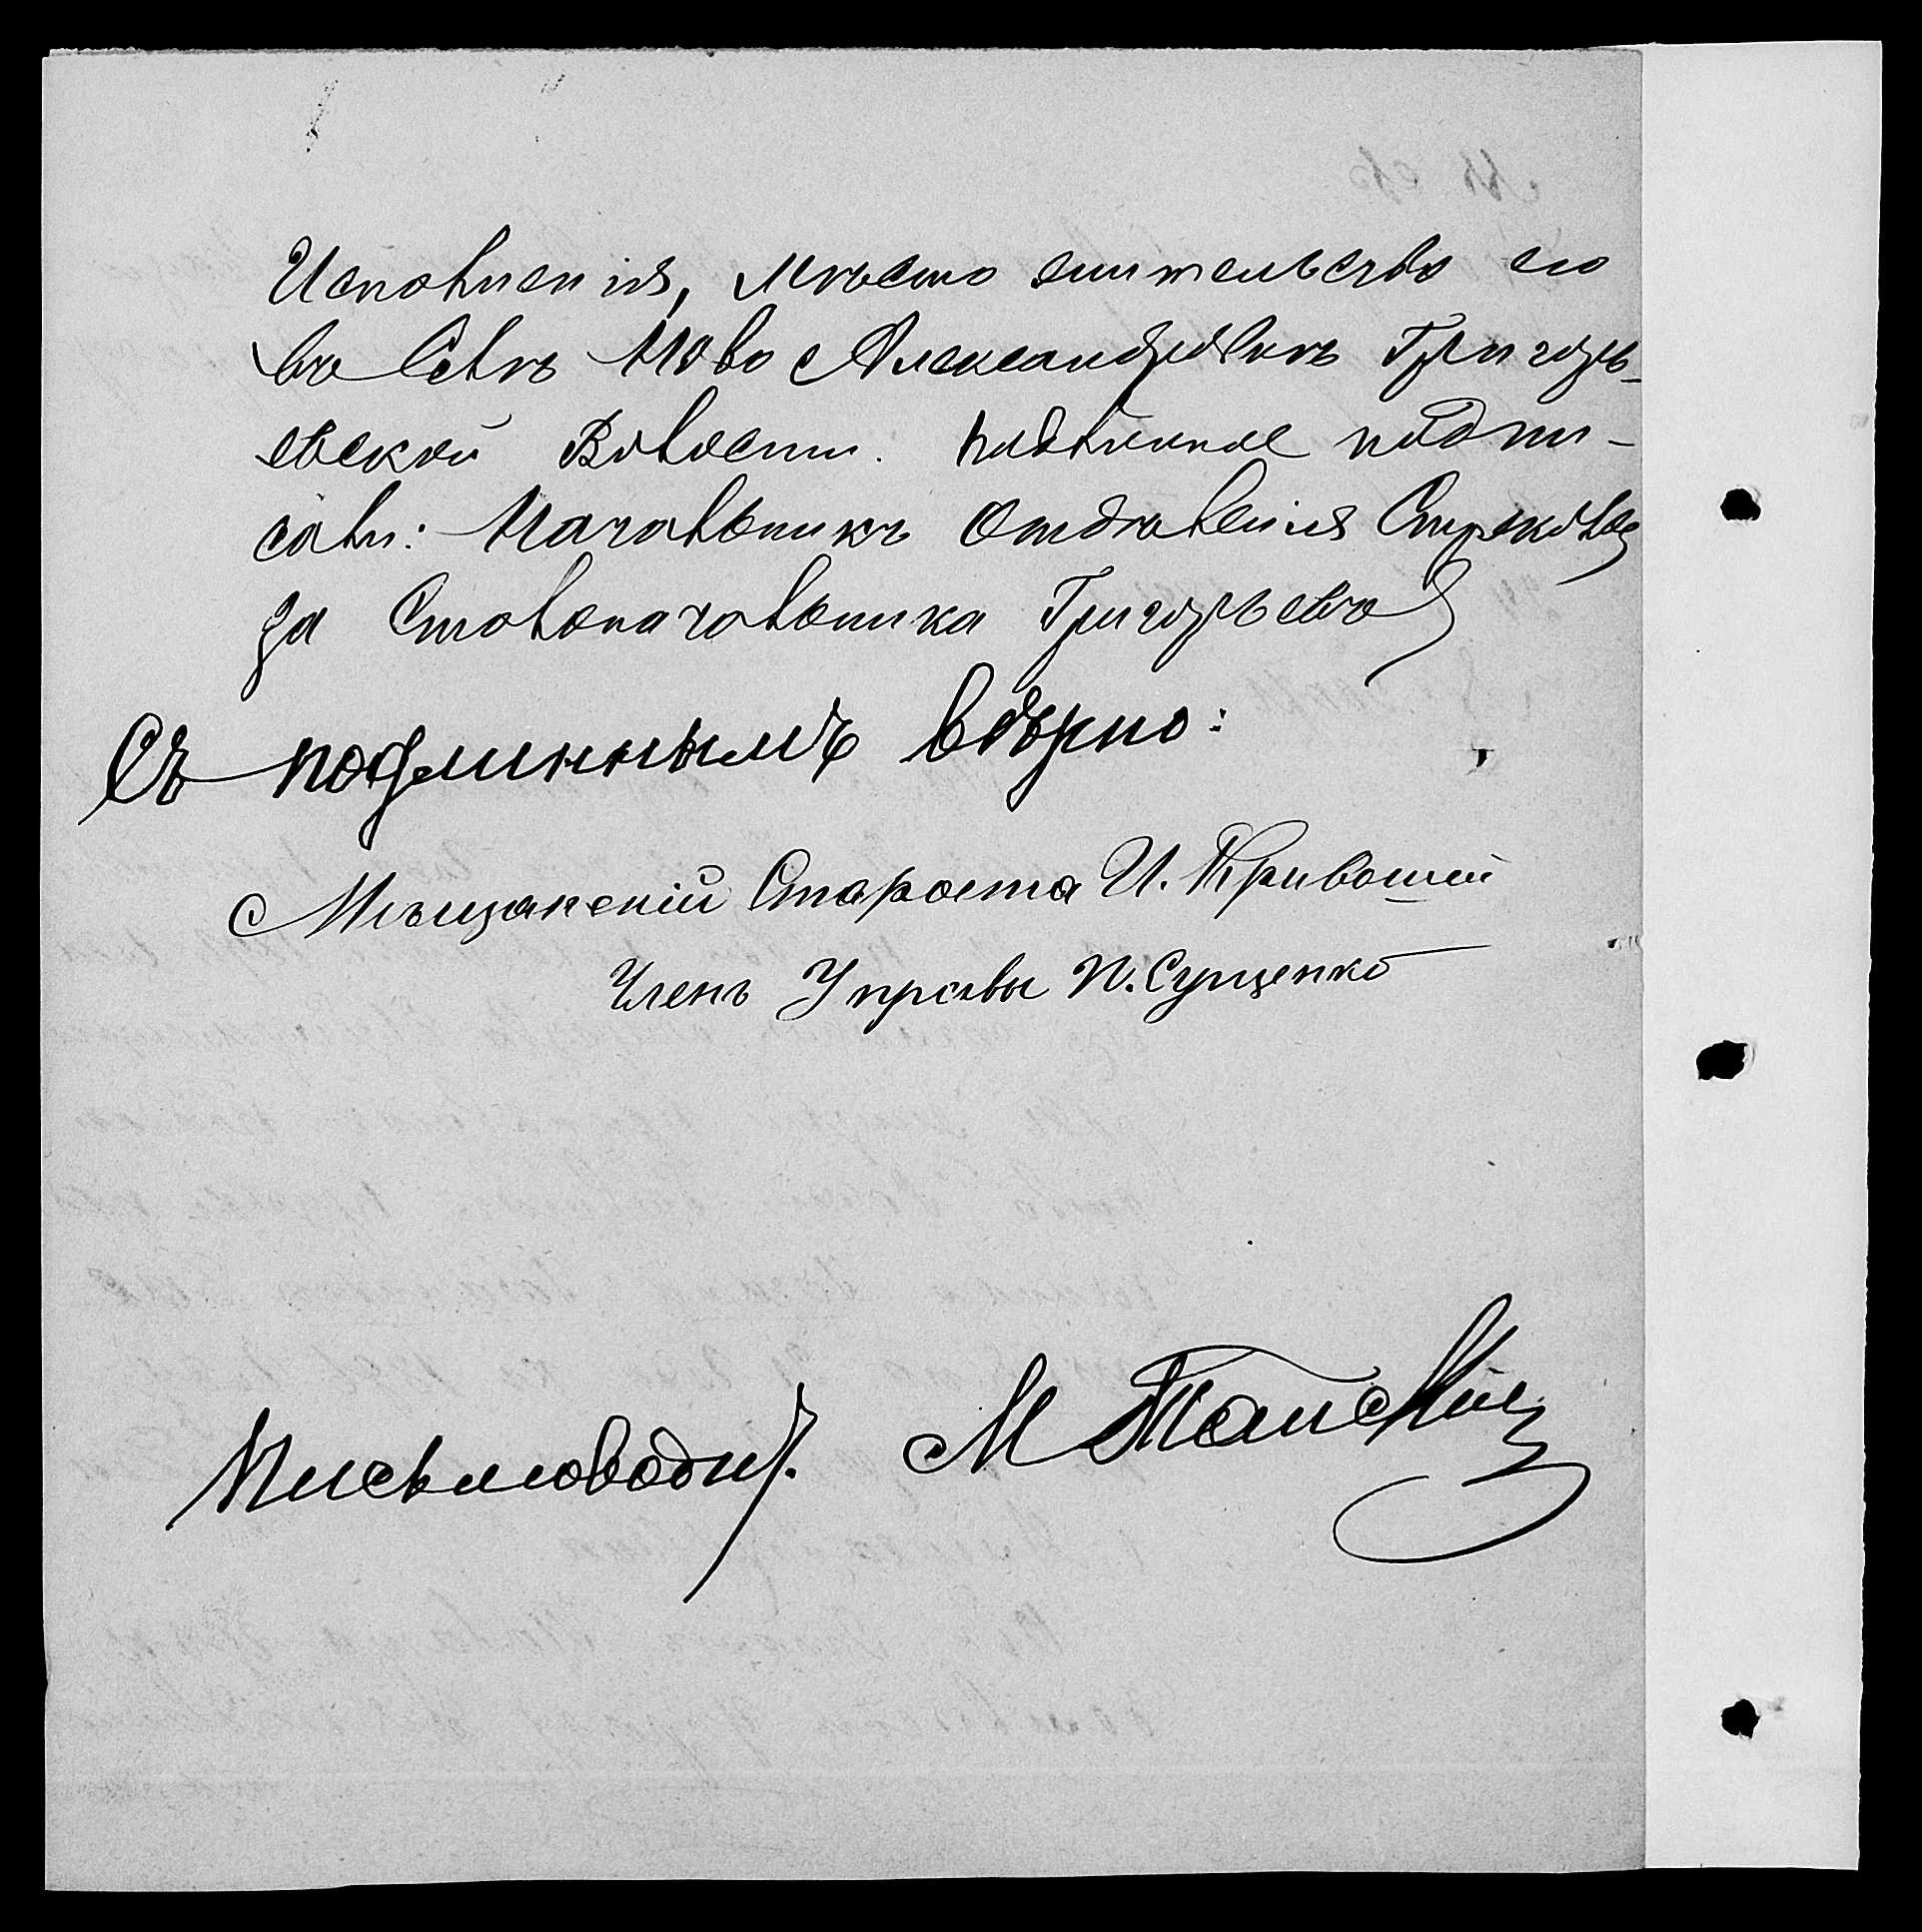 Исполненія, мѣсто жительство его
въ Селѣ Ново Александровкѣ Григорь-
евской Волости. Подлинное подпи-
сали: Начальникъ Отдѣленія
за Столоначальника Григорьевъ
Съ подлиннымъ вѣрно:
Мѣщанскій Староста И. Кривошей
Членъ Управы И. Сущенко
Письмоводит. М